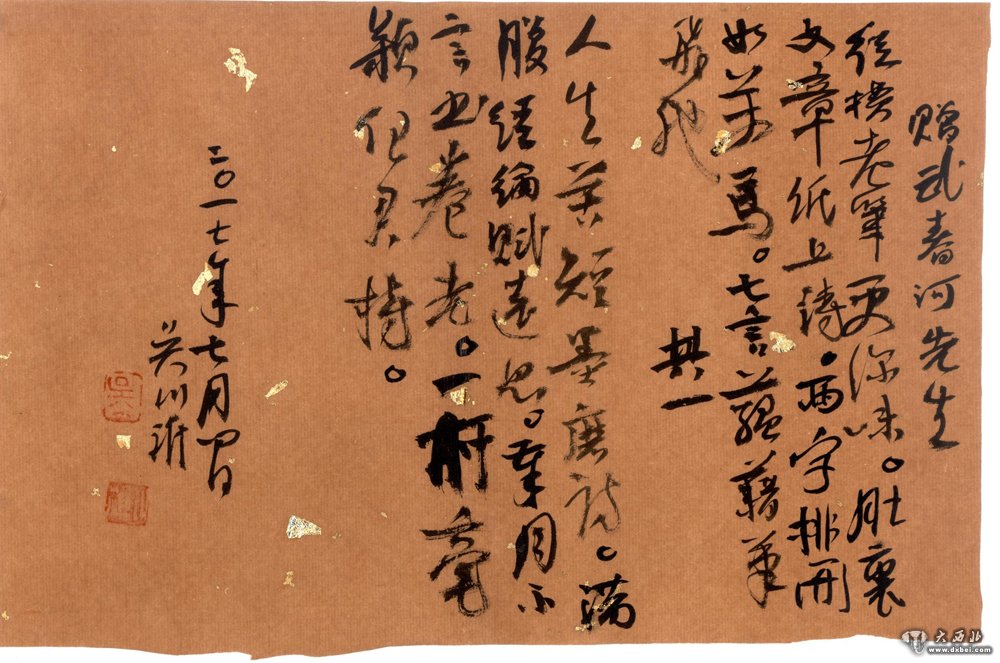 赠武春河先生
纵横老笔更深味。肚里
文章纸上诗。两字排开
如万马。七言蕴藉笔
飞驰 其一
人生苦短墨磨诗。满
腹经纶赋远思。草自不
言书卷老。一 毫
颖但君持。
二〇一七年七月四日
吴川淮
大西北
www.dxbei.com